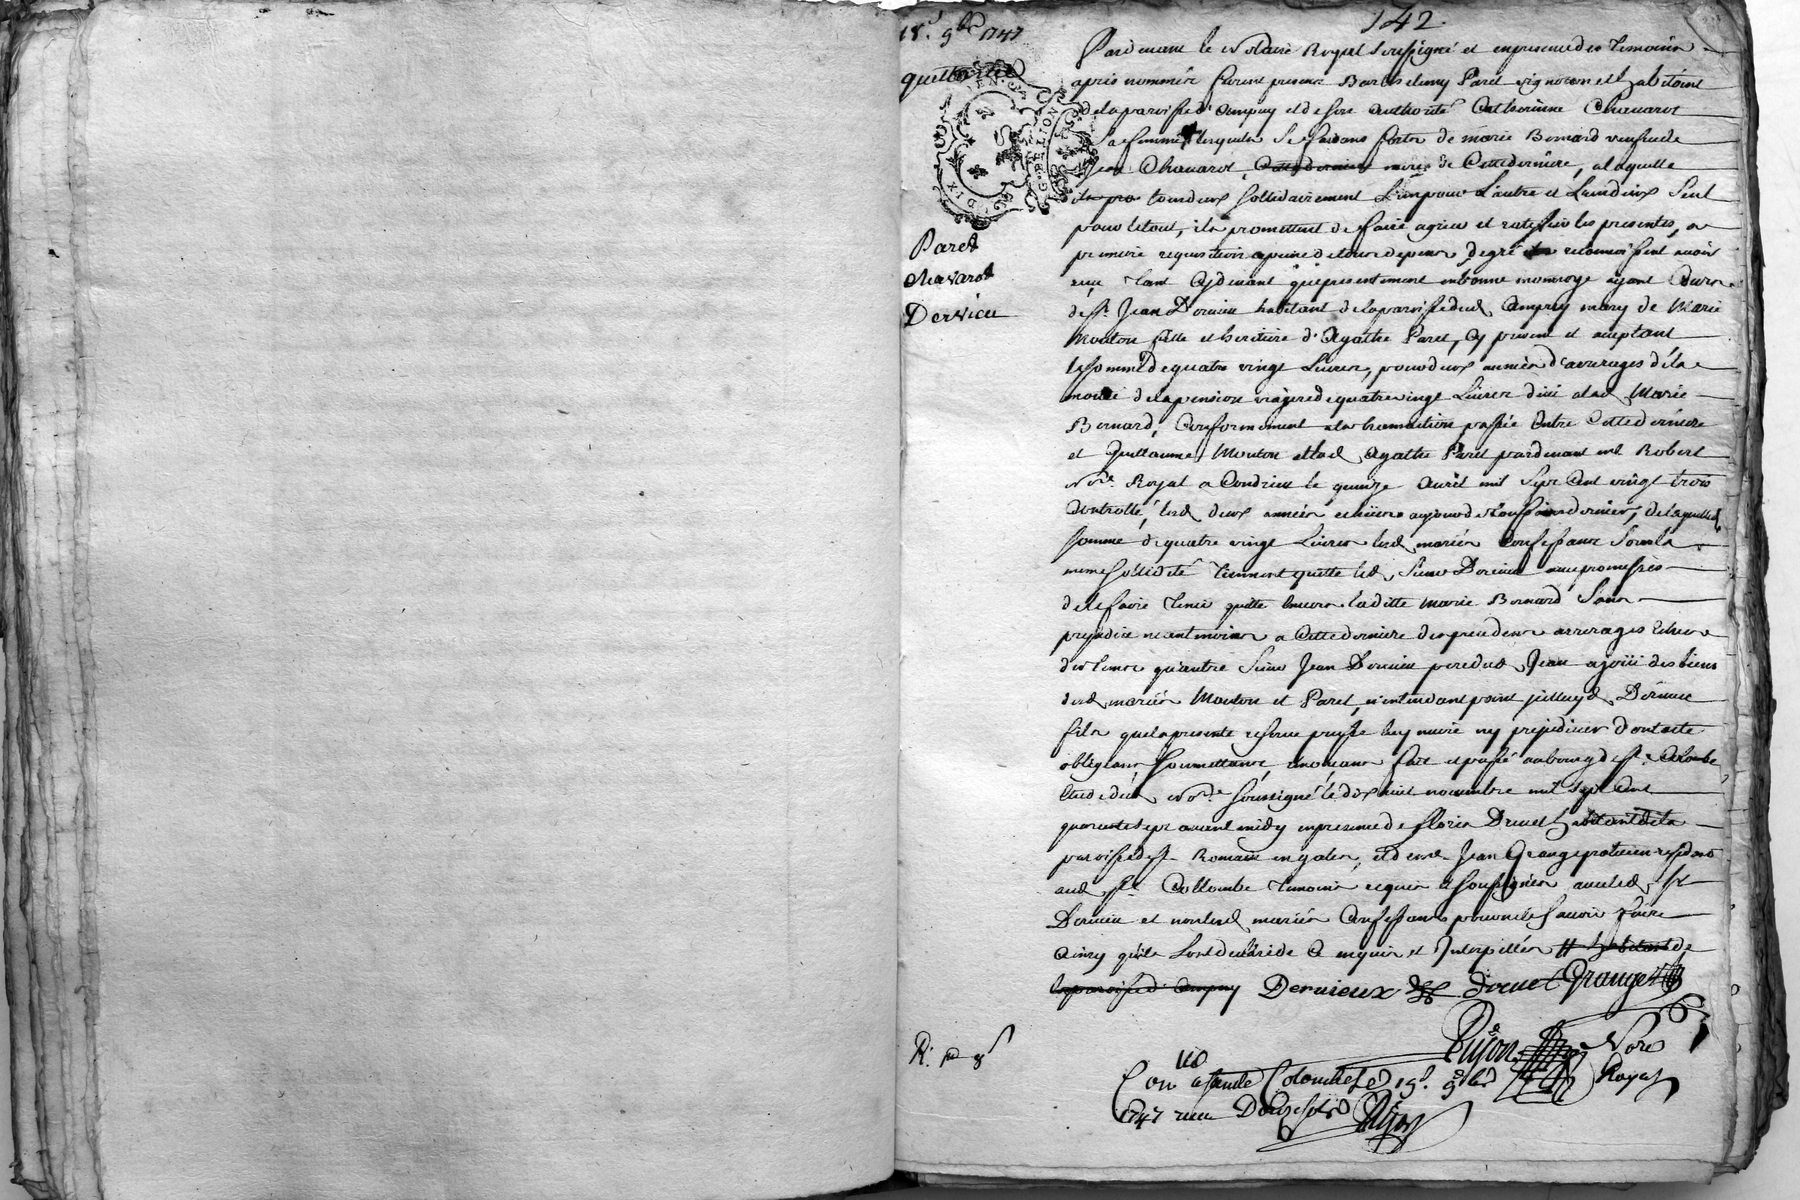 142.
18e. 9bre 1747
quittance
G. DE LION
DIX
DEN.
Paret
chavarot
Dervieu
Pardevant le Notaire Royal soussigné et en presence des temoins
apres nommés furent presens Barthelemy Paret vigneron et habitant
de la paroisse d'Ampuy et de son authorité Catherinne Chavarot
sa femme lesquels se faisans forts de marie Bernard veufve de
Jean Chavarot, cette derniere mere de Cette derniere, a laquelle
ils pro tous deux sollidairement l'un pour l'autre et l'un d'eux seul
pour le tout, ils promettent de faire agreer et ratifier les presentes, a
premiere requisition a peine de tous depens, de gré reconnoissent avoir
reçu tant cydevant que presentement en bonne monnoye ayant Cours
de sr. Jean Dervieu habitant de la paroisse dud. Ampuy mary de Marie
Mouton fille et heritiere d'Agathe Paret, cy present et acceptant
la somme de quatre vingt Livres, pour deux années d'arrerages de la
moitié de la pension viagere de quatre vingt Livres düe a lad. Marie
Bernard, Conformement a la transaction passée entre Cette derniere
et Guillaume Mouton et lad. Agathe Paret pardevant me Robert
Nore. Royal a Condrieu le quinze Avril mil sept cent vingt trois
Controllé, lesd. deux années echües au jour de toussaints dernier, de laquelle
somme de quatre vingt Livres lesd. mariés Confessans sous la
meme solidité tiennent quitte led. sieur Dervieu avec promesses
de le faire tenir quitte envers laditte Marie Bernard sans
prejudice neantmoins a Cette derniere des precedens arrerages echus
des tems qu'autre sieur Jean Dervieu pere dud. Jean a joüi des biens
desd. mariés Mouton et Paret, n'entendant point jcelluy d. Dervieu
fils que la presente reserve puisse luy nuire ny prejudicier dont acte
obligeans, soumettans, renonceans fait et passé au bourg de ste. Colombe
Etude dud. Nore. soussigné le dix huit novembre mil sept cent
quarante sept avant midy en presence de fleuris Drevet habitant de la
paroisse de st Romain en galles, et de me Jean Grange praticien residant
aud. ste Collombe temoins requis et soussignés avec led. sr.
Dervieu et non lesd. mariés Confessans pour ne le savoir faire
Ainsy qu'ils l'ont declaré de ce enquis et Interpellés habitant de
la paroisse d'Ampuy Dervieux Drevet Grange
Dijon Nore
Royal
R: pr 8s
Con a sainte Colombe le 19e. 9bre
1747 reçu Douze sols Dijon